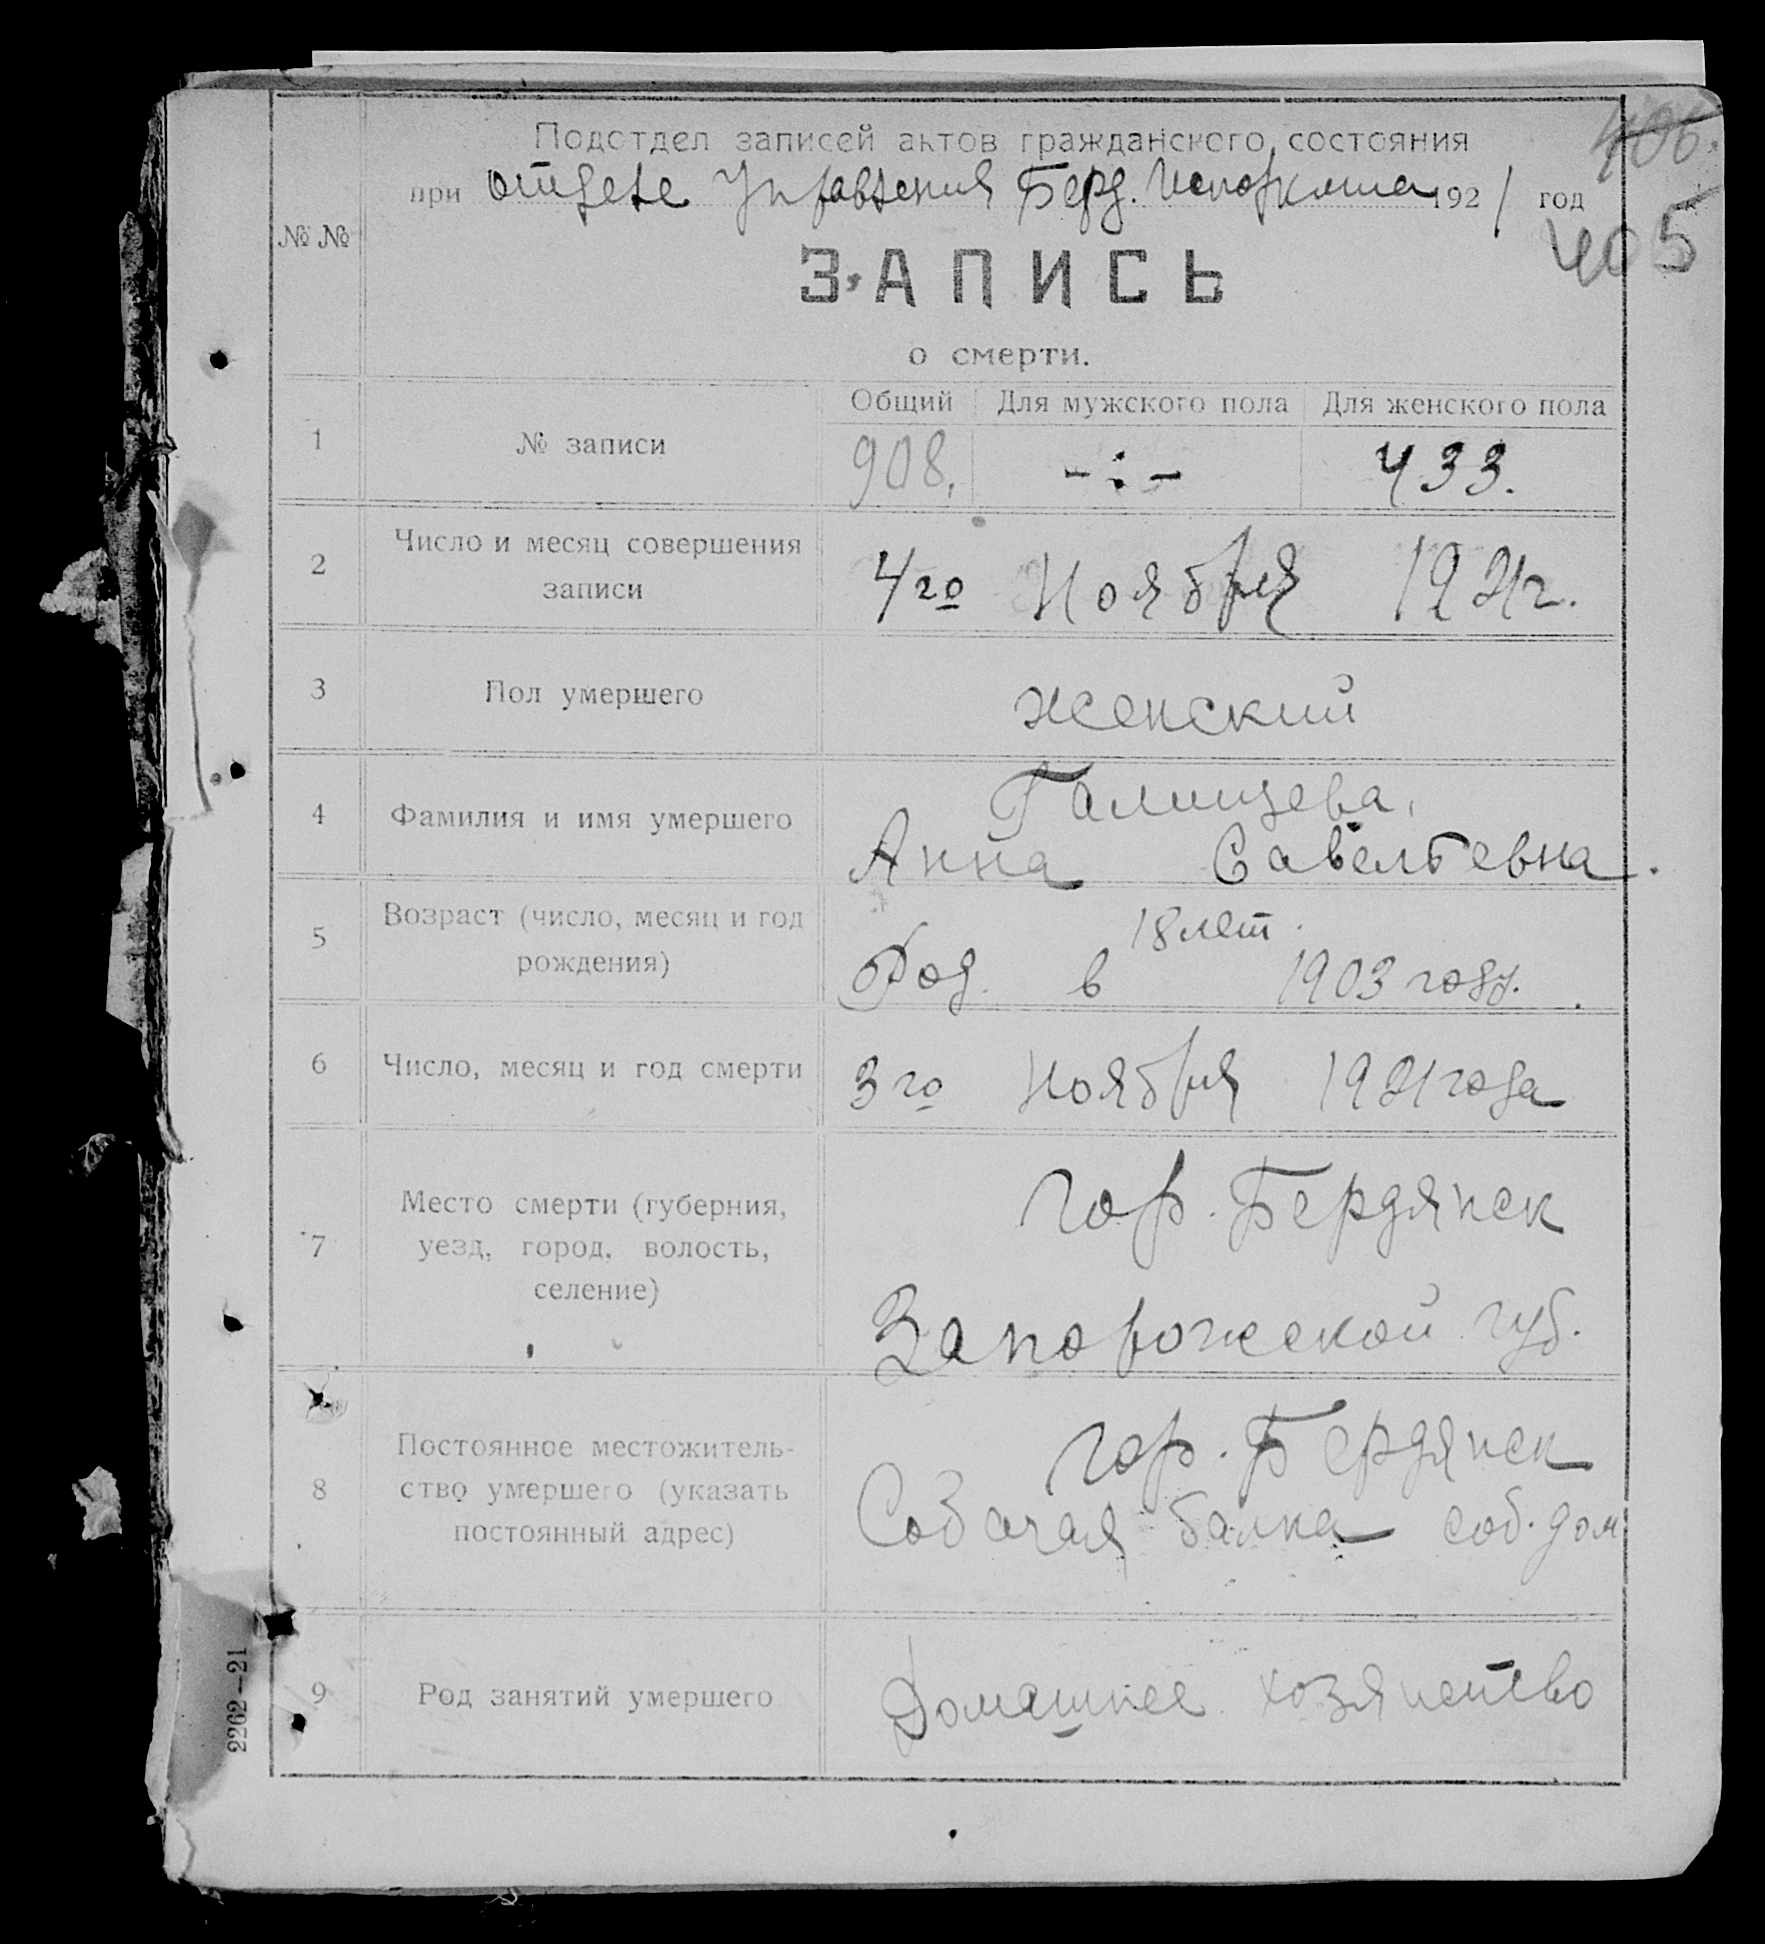 Подотдел записей актов гражданского состояния
406.
при отделе Управления Берд. Исполкома 1921 год
405
№ №
ЗАПИСЬ
о смерти.
Общий Для мужского пола Для женского пола
1 № записи 908. -:- 433.
2 Число и месяц совершения
записи
4го Ноября 1921г.
3 Пол умершего женский
4 Фамилия и имя умершего
Галищева,
Анна Савельевна.
5 Возраст (число, месяц и год
рождения)
18 лет.
Род. в 1903 году.
6 Число, месяц и год смерти 3го Ноября 1921 года
7 Место смерти (губерния,
уезд, город, волость,
селение)
гор. Бердянск
Запорожской губ.
8 Постоянное местожитель-
ство умершего (указать
постоянный адрес)
гор. Бердянск
Собачая балка соб. дом
9 Род занятий умершего Домашнее хозяйство
2262—21